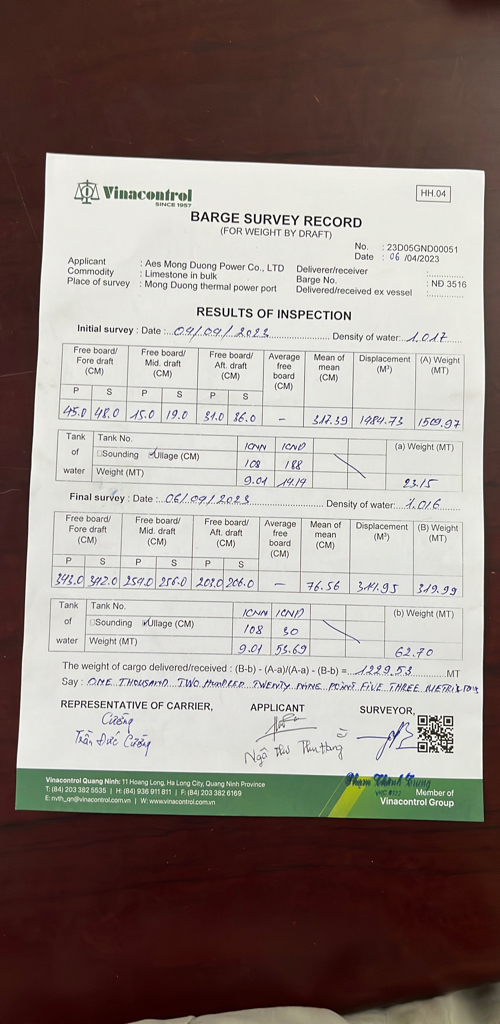 Vinacontrol
SINCE 1957
HH.04
BARGE SURVEY RECORD
(FOR WEIGHT BY DRAFT)
No. : 23D05GND00051
Date : 06 /04/2023
Applicant : Aes Mong Duong Power Co., LTD Deliverer/receiver :
Commodity : Limestone in bulk Barge No. : NĐ 3516
Place of survey : Mong Duong thermal power port Delivered/received ex vessel :
RESULTS OF INSPECTION
Initial survey : Date : 04/04/2023 Density of water: 1.017
Free board/ Fore draft (CM) Free board/ Mid. draft (CM) Free board/ Aft. draft (CM) Average free board (CM) Mean of mean (CM) Displacement (M³) (A) Weight (MT)
P S P S P S
45.0 48.0 15.0 19.0 31.0 36.0 - 317.39 1484.73 1509.97
Tank of water Tank No. (a) Weight (MT)
□Sounding ✓Ullage (CM) 108 188
Weight (MT) 9.01 14.14 23.15
Final survey : Date : 06/04/2023 Density of water: 1.016
Free board/ Fore draft (CM) Free board/ Mid. draft (CM) Free board/ Aft. draft (CM) Average free board (CM) Mean of mean (CM) Displacement (M³) (B) Weight (MT)
P S P S P S
343.0 342.0 254.0 256.0 203.0 206.0 - 76.56 314.95 319.99
Tank of water Tank No. (b) Weight (MT)
□Sounding ✓Ullage (CM) 108 30
Weight (MT) 9.01 53.69 62.70
The weight of cargo delivered/received : (B-b) - (A-a)/(A-a) - (B-b) = 1229.53 MT
Say : ONE THOUSAND TWO HUNDRED TWENTY NINE POINT FIVE THREE METRIC TONS
REPRESENTATIVE OF CARRIER, APPLICANT SURVEYOR,
Cường
Trần Đức Cường
Phạm Thành Trung
Vinacontrol Quang Ninh: 11 Hoang Long, Ha Long City, Quang Ninh Province
T: (84) 203 382 5535 | H: (84) 936 911 811 | F: (84) 203 382 6169
E: nvth_qn@vinacontrol.com.vn | W: www.vinacontrol.com.vn
Member of
Vinacontrol Group